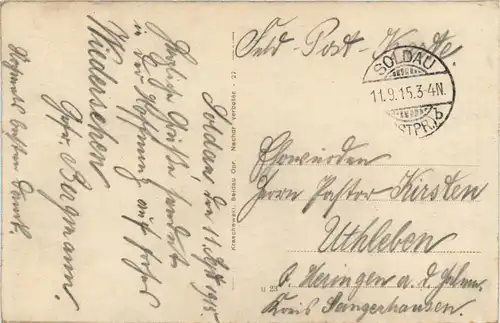 Feld-Post-Karte.
SOLDAU
11.9.15.3-4N.
(OSTPR.) b
Ehrwürden
Herrn Pastor Kirsten
Uthleben
b. Heringen a. d. Helme.
Kreis Sangerhausen.
Soldau, den 11. Sept. 1915
Herzliche Grüße sendet
in der Hoffnung auf frohes
Wiedersehen
Gefr. Bergmann.
Nochmals besten Dank.
Nachdr. verboten - 27
u 23